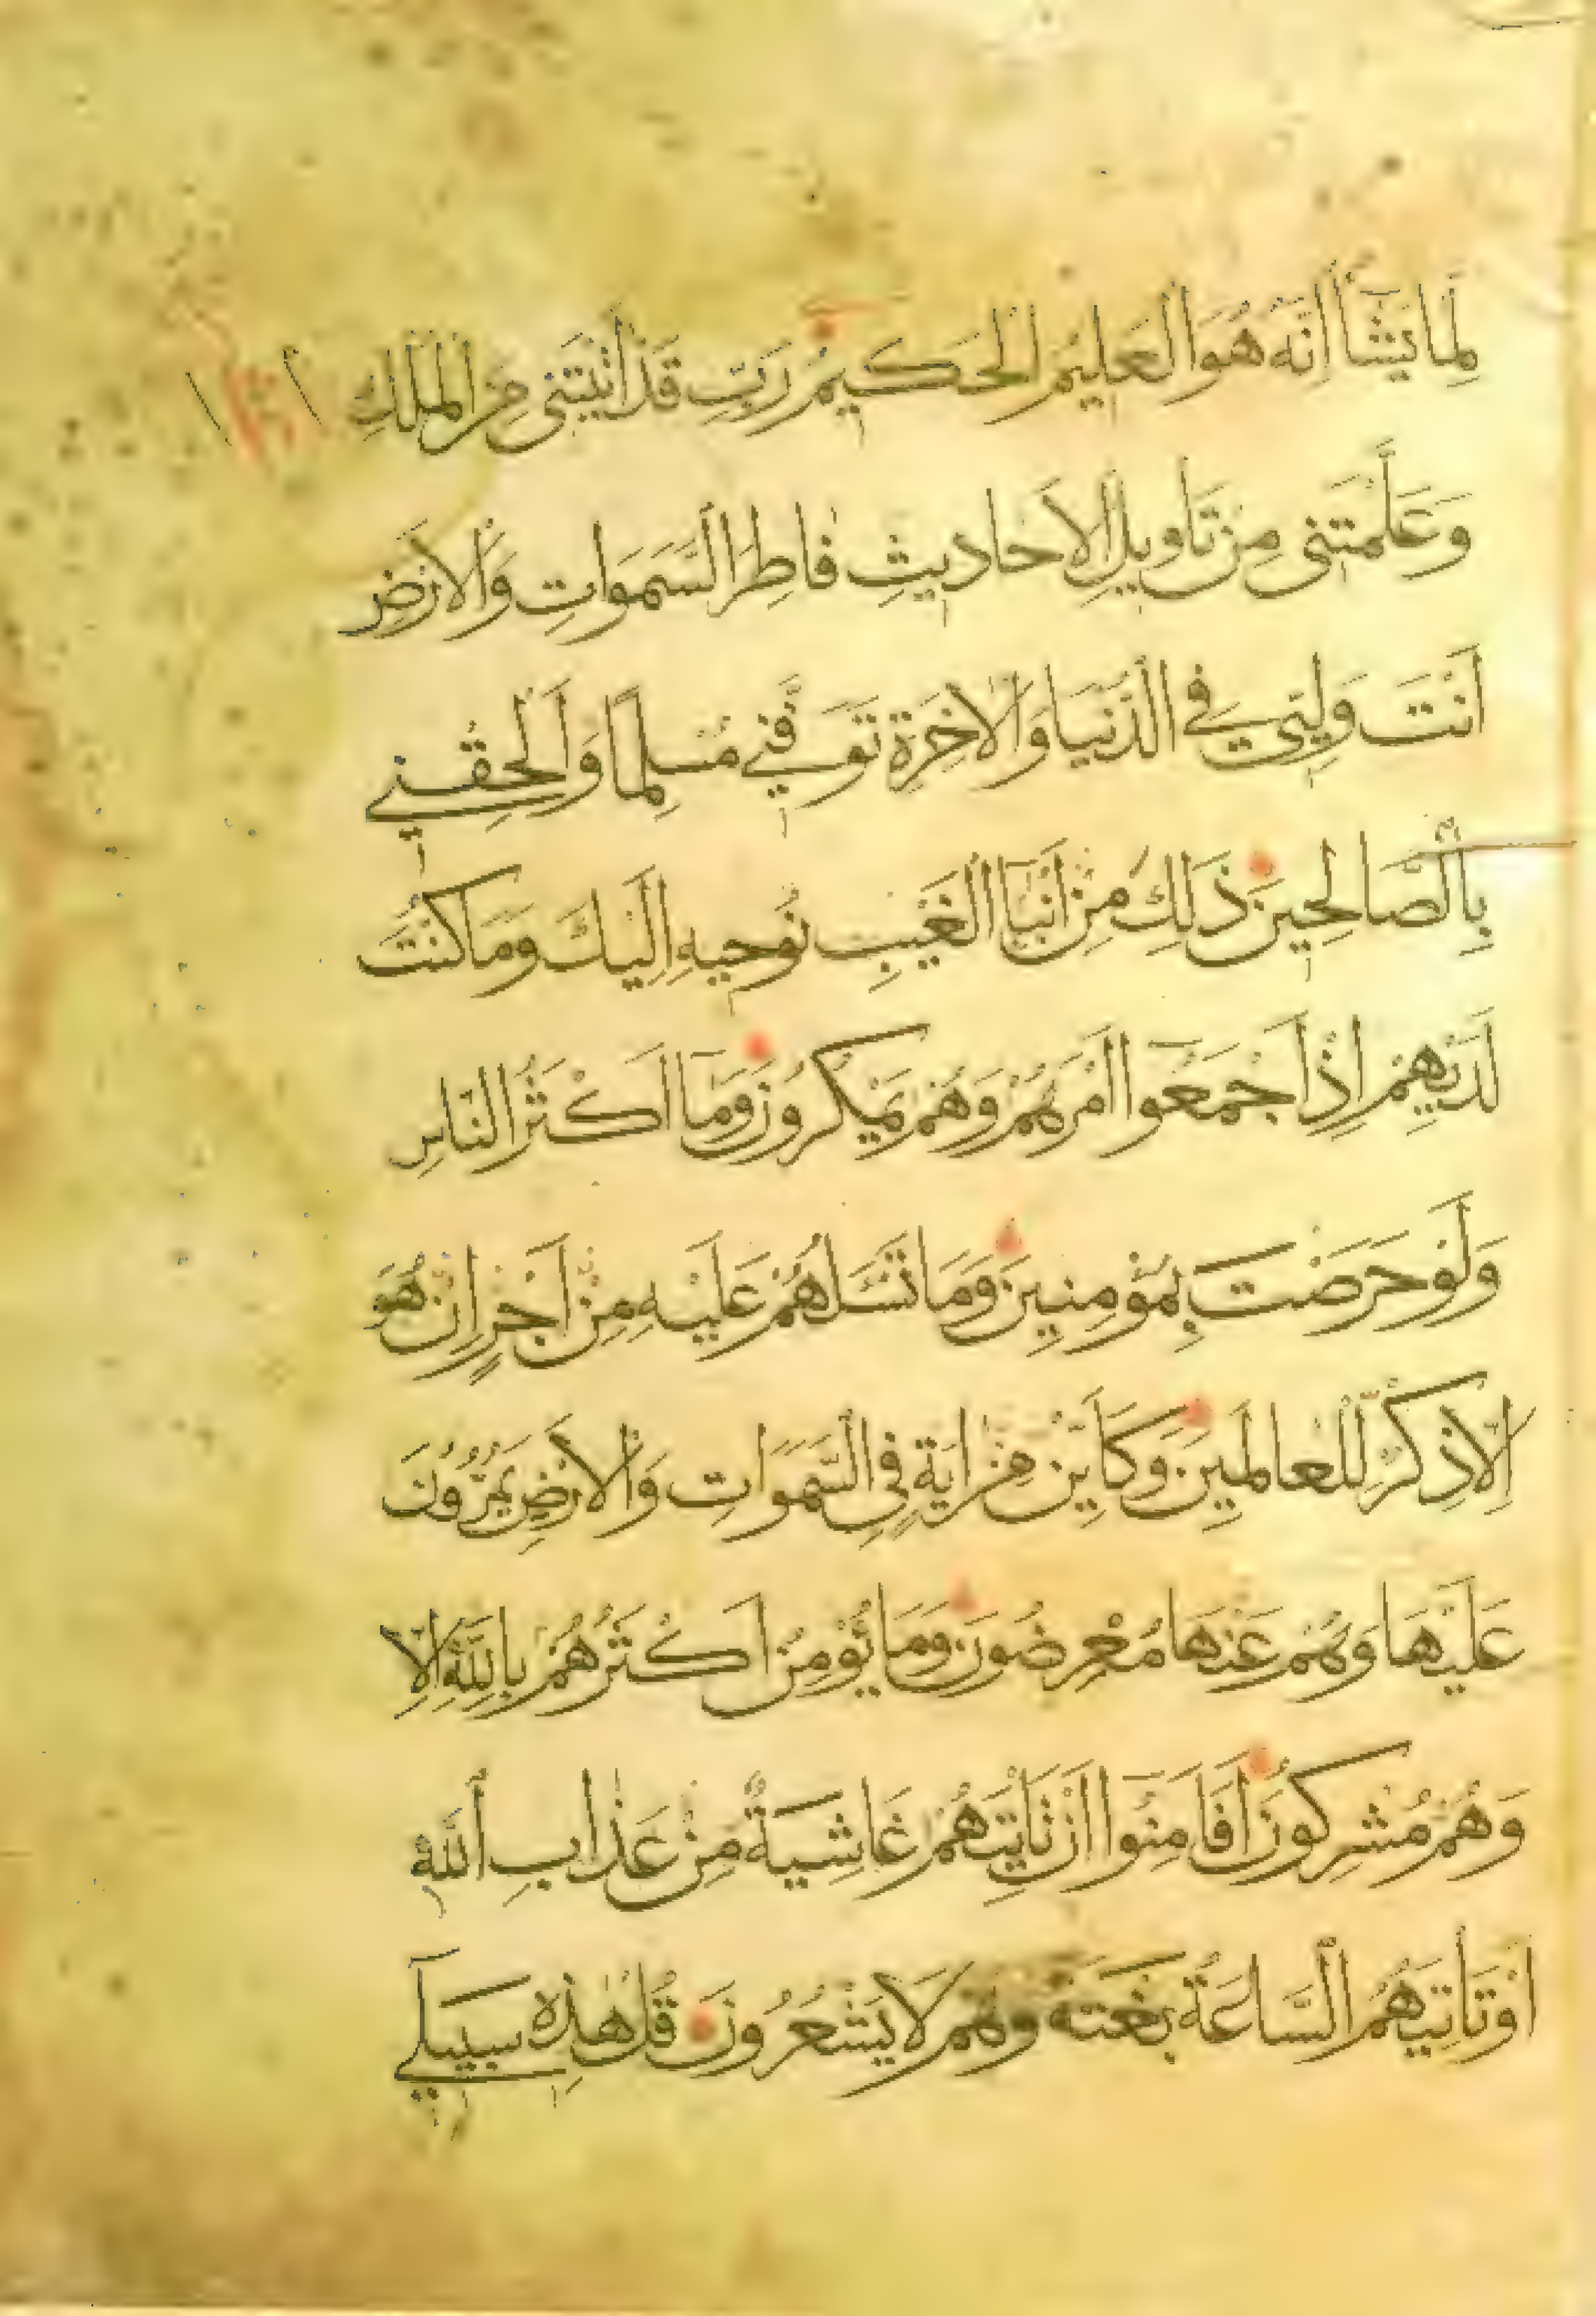 لِمَا يَشَآءُ إِنَّهُ هُوَ الْعَلِيمُ الْحَكِيمُ رَبِّ قَدْ اٰتَيْتَنِى مِنَ الْمُلْكِ
وَعَلَّمْتَنِى مِنْ تَأْوِيلِ الْاَحَادِيثِ فَاطِرَ السَّمَوَاتِ وَالْاَرْضِ
اَنْتَ وَلِيِّى فِى الدُّنْيَا وَالْاٰخِرَةِ تَوَفَّنِى مُسْلِمًا وَاَلْحِقْنِى
بِالصَّالِحِينَ ذَلِكَ مِنْ اَنْبَآءِ الْغَيْبِ نُوحِيهِ اِلَيْكَ وَمَا كُنْتَ
لَدَيْهِمْ اِذْ اَجْمَعُوا اَمْرَهُمْ وَهُمْ يَمْكُرُونَ وَمَا اَكْثَرُ النَّاسِ
وَلَوْ حَرَصْتَ بِمُؤْمِنِينَ وَمَا تَسْـَٔلُهُمْ عَلَيْهِ مِنْ اَجْرٍ اِنْ هُوَ
اِلَّا ذِكْرٌ لِلْعَالَمِينَ وَكَاَيِّنْ مِنْ اٰيَةٍ فِى السَّمَوَاتِ وَالْاَرْضِ يَمُرُّونَ
عَلَيْهَا وَهُمْ عَنْهَا مُعْرِضُونَ وَمَا يُؤْمِنُ اَكْثَرُهُمْ بِاللّٰهِ اِلَّا
وَهُمْ مُشْرِكُونَ اَفَاَمِنُوا اَنْ تَأْتِيَهُمْ غَاشِيَةٌ مِنْ عَذَابِ اللّٰهِ
اَوْ تَأْتِيَهُمُ السَّاعَةُ بَغْتَةً وَهُمْ لَا يَشْعُرُونَ قُلْ هٰذِهِ سَبِيلِى